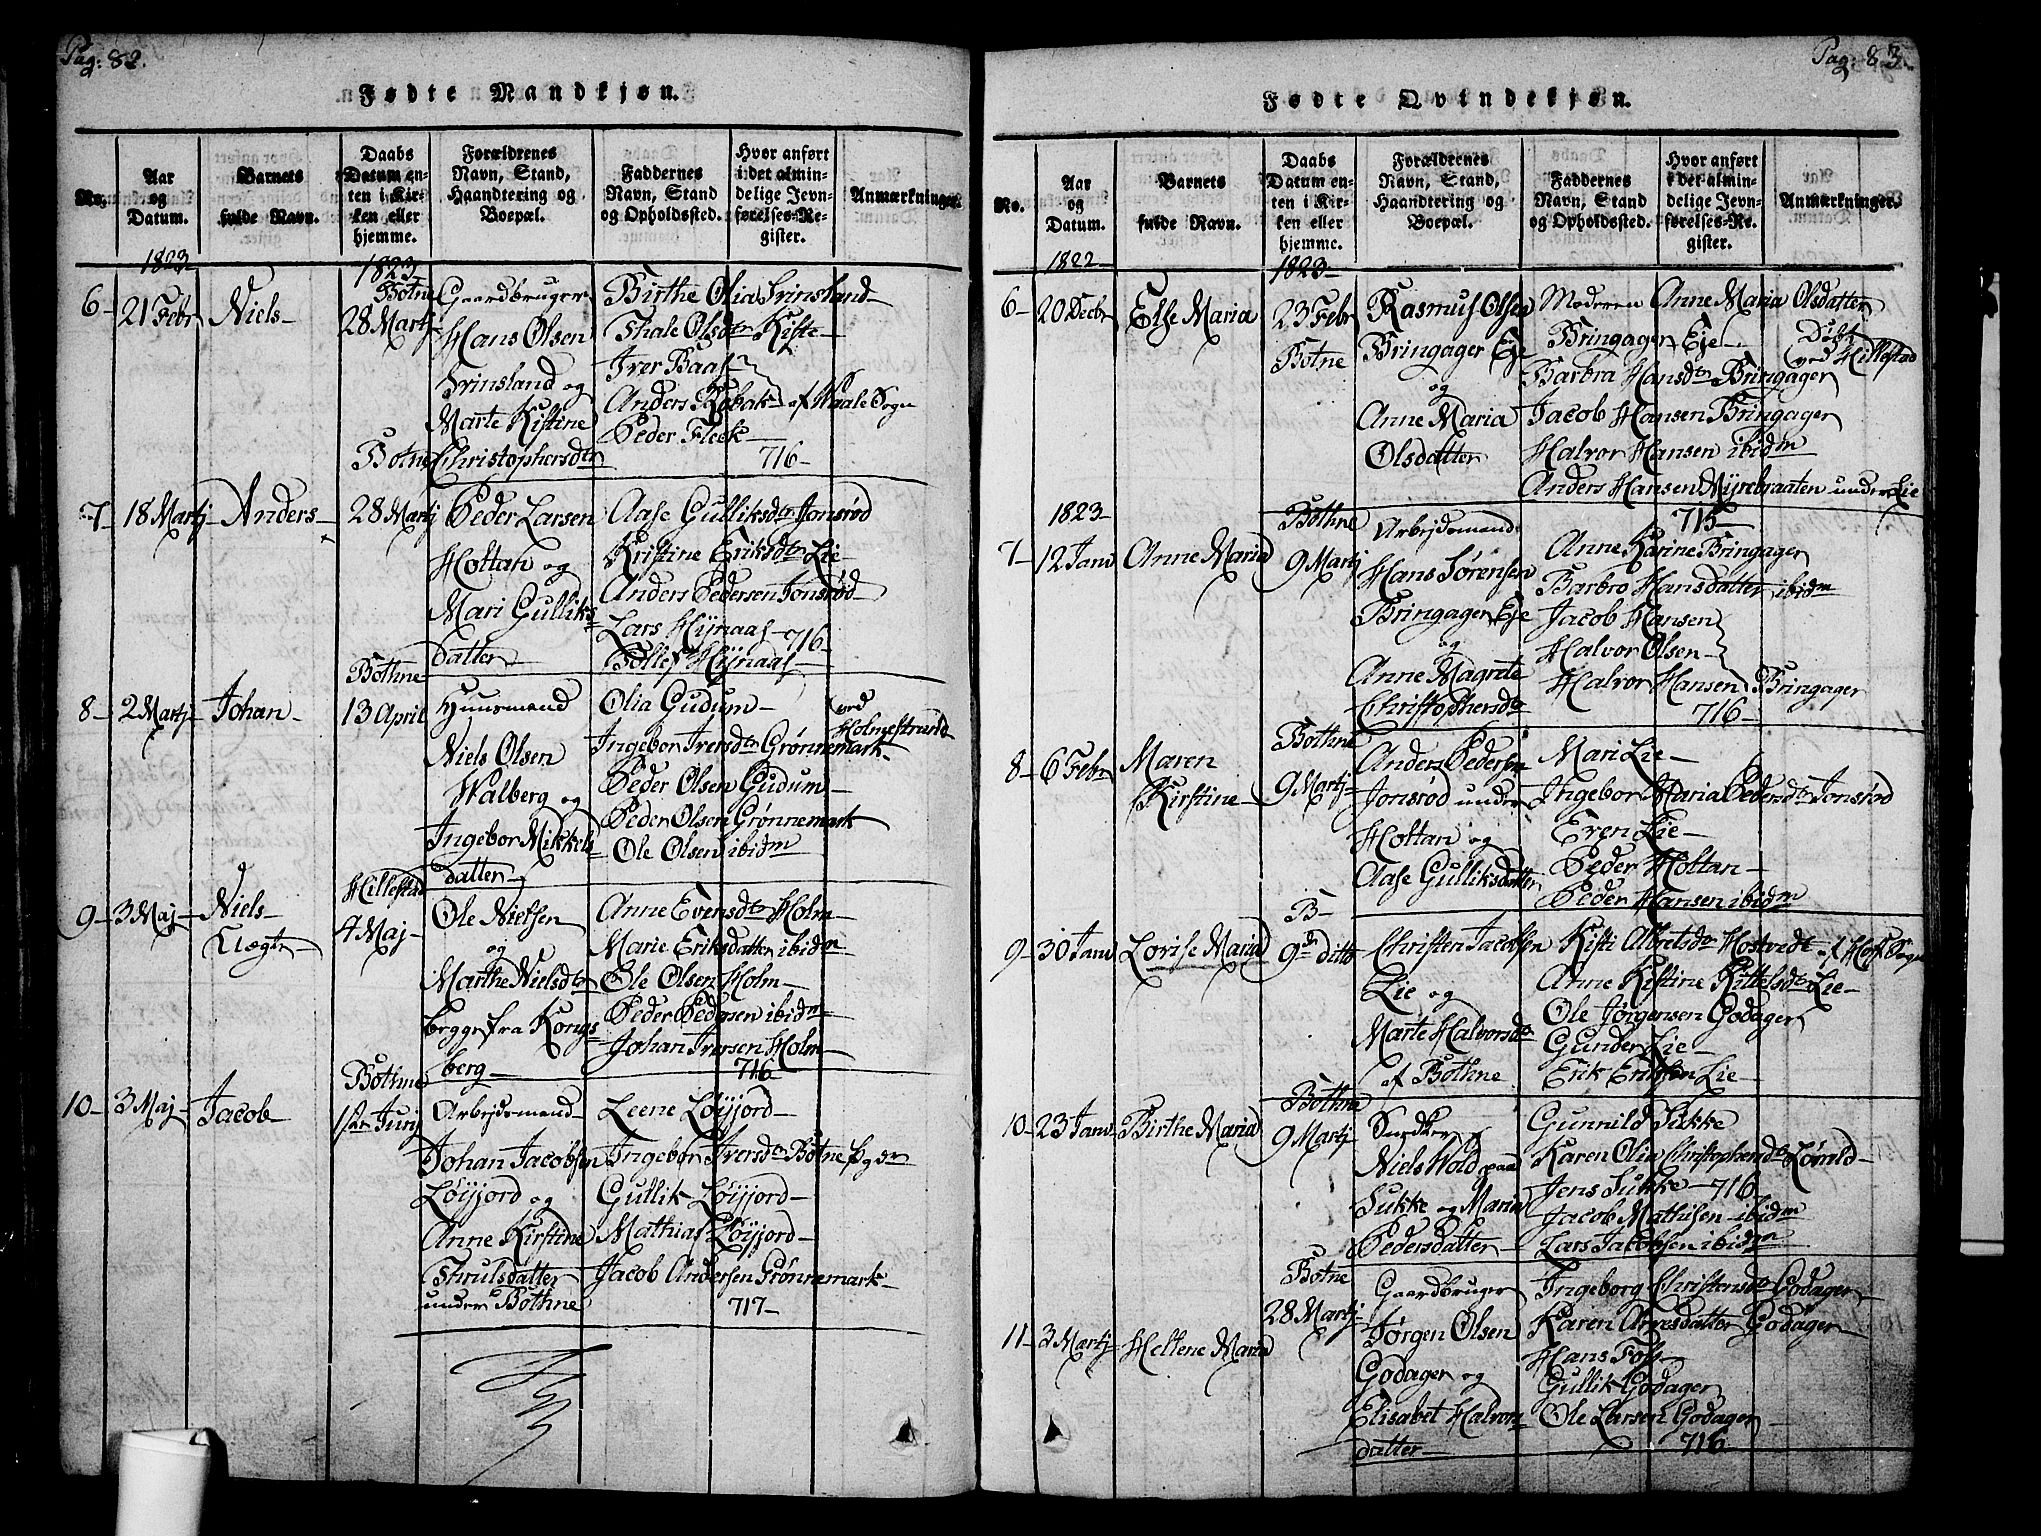 Pag: 82.
Fødte Mandkjøn.
No.
Aar og Datum.
Barnets fulde Navn.
Daabs Datum enten i Kirken eller hjemme.
Forældrenes Navn, Stand, Haandtering og Boepæl.
Faddernes Navn, Stand og Opholdssted.
Hvor anført i det almindelige Jevnførelses-Register.
Anmærkninger.
1823
1823
6 21 Febr Niels
Botne
28 Martj
Gaardbruger
Hans Olsen
Srinsland og
Marte Kistine
Christophersdtr
Birthe Olia Srinsland
Thale Olsdtr Kiste
Iver Baas
Anders Robak af Waale Sogn
Peder Fleek
716
7 18 Martj Anders
Botne
28 Martj
Peder Larsen
Holtan og
Mari Gulliks=
datter
Aase Gulliksdtr Jonsrød
Kristine Eriksdtr Lie
Anders Pedersen Jonsrød
Lars Hijnaas 716
Tollef Hijnaas
8 2 Martj Johan
Bothne
13 April
Huusmand
Niels Olsen
Walberg og
Ingebor Mikkels=
datter
Olia Gudum
Ingebor Iversdtr Grønnemark
ved Holmestrand
Peder Olsen Gudum
Peder Olsen Grønnemark
Ole Olsen ibidm
9 3 Maj Niels
Uægte
Hillestad
4 Maj
Ole Nielsen
og
Marthe Nielsdtr
begge fra Kongs=
berg
Anne Evensdtr Holm
Marie Eriksdatter ibidm
Ole Olsen Holm
Peder Pedersen ibidm
Johan Iversen Holm
716
10 3 Maj Jacob
Bothne
1ste Junj
Arbejdsmand
Johan Jacobsen
Løyjord og
Anne Kirstine
Thrulsdatter
under Bothne
Leene Løyjord
Ingebor Iversdtr Botne
Gullik Løyjord
Mathias Løyjord
Jacob Andersen Grønnemark
717
Pag: 83.
Fødte Qvindekjøn.
No.
Aar og Datum.
Barnets fulde Navn.
Daabs Datum enten i Kirken eller hjemme.
Forældrenes Navn, Stand, Haandtering og Boepæl.
Faddernes Navn, Stand og Opholdssted.
Hvor anført i det almindelige Jevnførelses-Register.
Anmærkninger.
1822
1823
6 20 Decbr Else Maria
23 Febr
Botne
Rasmus Olsen
Bringager Eje
og
Anne Maria
Olsdatter
Moderen Anne Maria Olsdatter
Bringager Eje
Døbt ved Hillestad
Barbra Hansdtr Bringager
Jacob Hansen Bringager
Halvor Hansen ibidm
Anders Hansen Myrebraaten under Lie
715
1823
7 12 Janv Anne Maria
Bothne
9 Martj
Arbejdsmand
Hans Sørensen
Bringager Eje
og
Anne Magrete
Christophersdtr
Anne Karine Bringager
Barbro Hansdatter ibidm
Jacob Hansen
Halvor Olsen
Halvor Hansen Bringager
716
8 6 Febr Maren
Kirstine
Bothne
9 Martj
Anders Pedersen
Jonsrød under
Holtan og
Aase Gulliksdatter
Mari Lie
Ingebor Maria Pedersdtr Jonsrød
Even Lie
Peder Holtan
Peder Hansen ibidm
9 30 Janv Lovise Maria
B
9d ditto
Christen Jacobsen
Lie og
Marte Halvorsdtr
af Bothne
Kisti Albretsdtr Hostvedt af Hof Sogn
Anne Kistine Kittelsdtr Lie
Ole Jørgensen Godager
Gunder Lie
Erik Eriksen Lie
10 23 Janv Birthe Maria
Bothne
9 Martj
Snedker
Niels Wold paa
Sukke og Maria
Pedersdatter
Gunnild Sukke
Karen Olia Christophersdtr Løvald
Jens Sukke 716
Jacob Mathisen ibidm
Lars Jacobsen ibidm
11 3 Martj Hellene Maria
Botne
28 Martj
Gaardbruger
Jørgen Olsen
Godager og
Elisabet Halvors=
datter
Ingeborg Christensdtr Godager
Karen Arvesdatter Godager
Hans Foss
Gullik Godager
Ole Larsen Godager
716